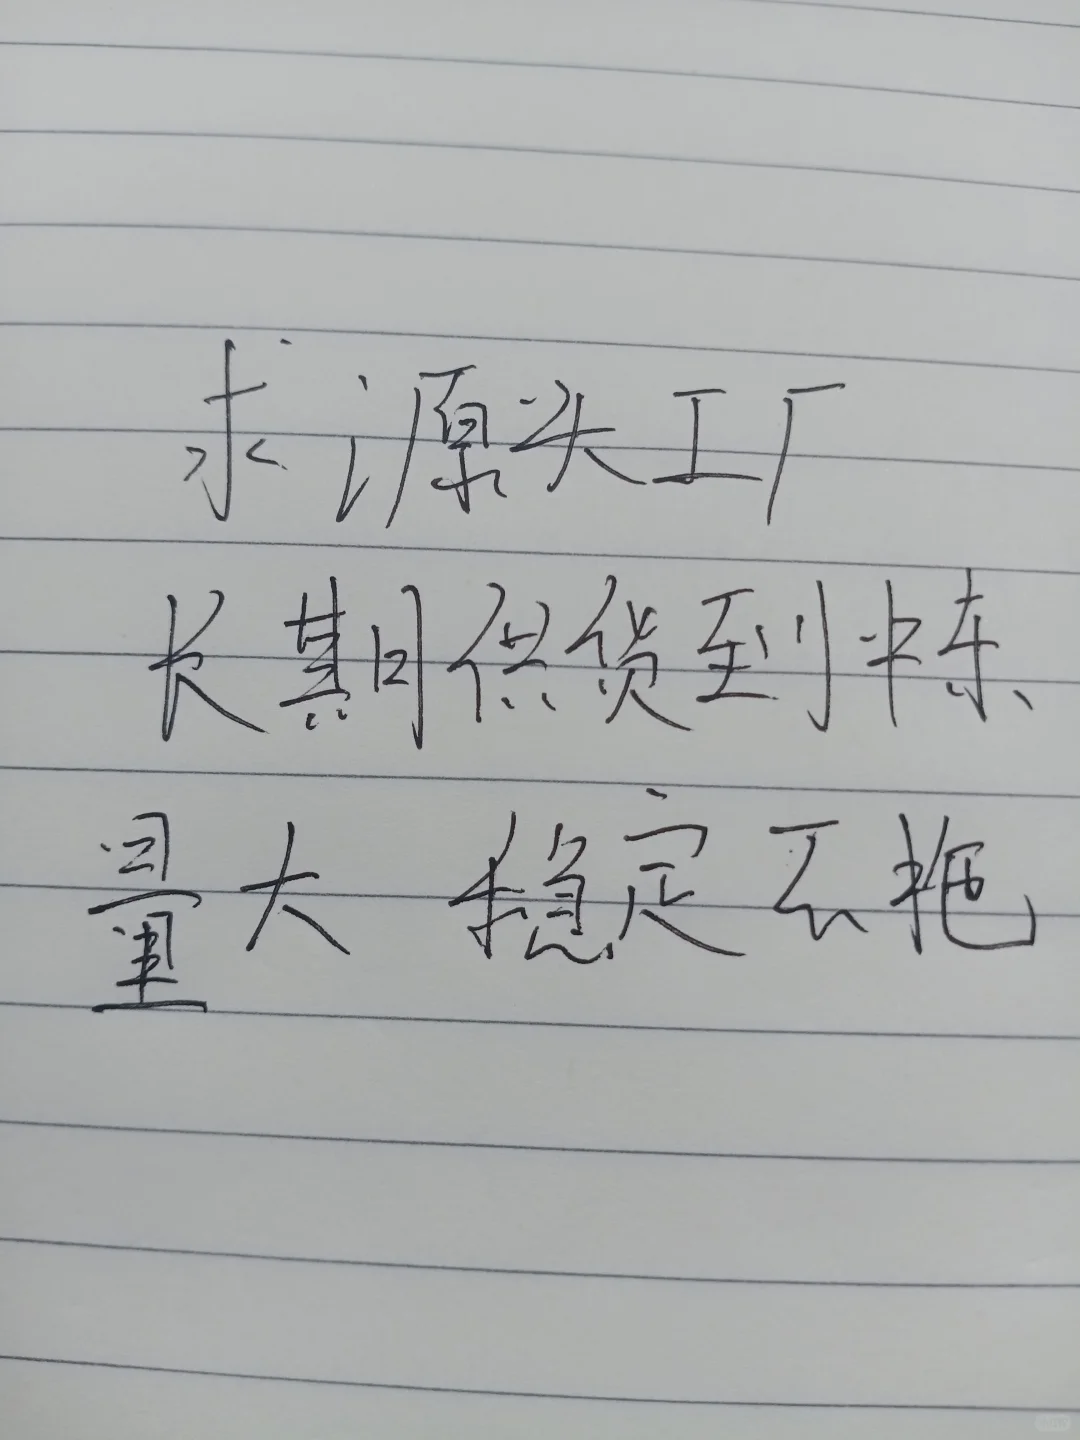 求源头工厂
长期供货到中东
量大 稳定不拖